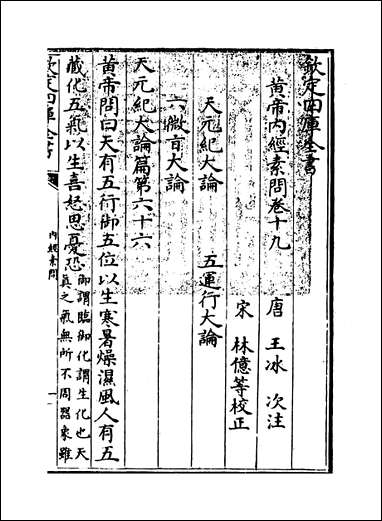 欽定四庫全書
黄帝内經素問卷十九
唐　王冰　次注
宋　林億等校正
天元紀大論　五運行大論
六微㫖大論
天元紀大論篇第六十六
黄帝問曰天有五行御五位以生寒暑燥濕風人有五
藏化五氣以生喜怒思憂恐御謂臨御化謂生化也天
真之氣無所不周器象雖
欽定四庫全書
内經素問
一